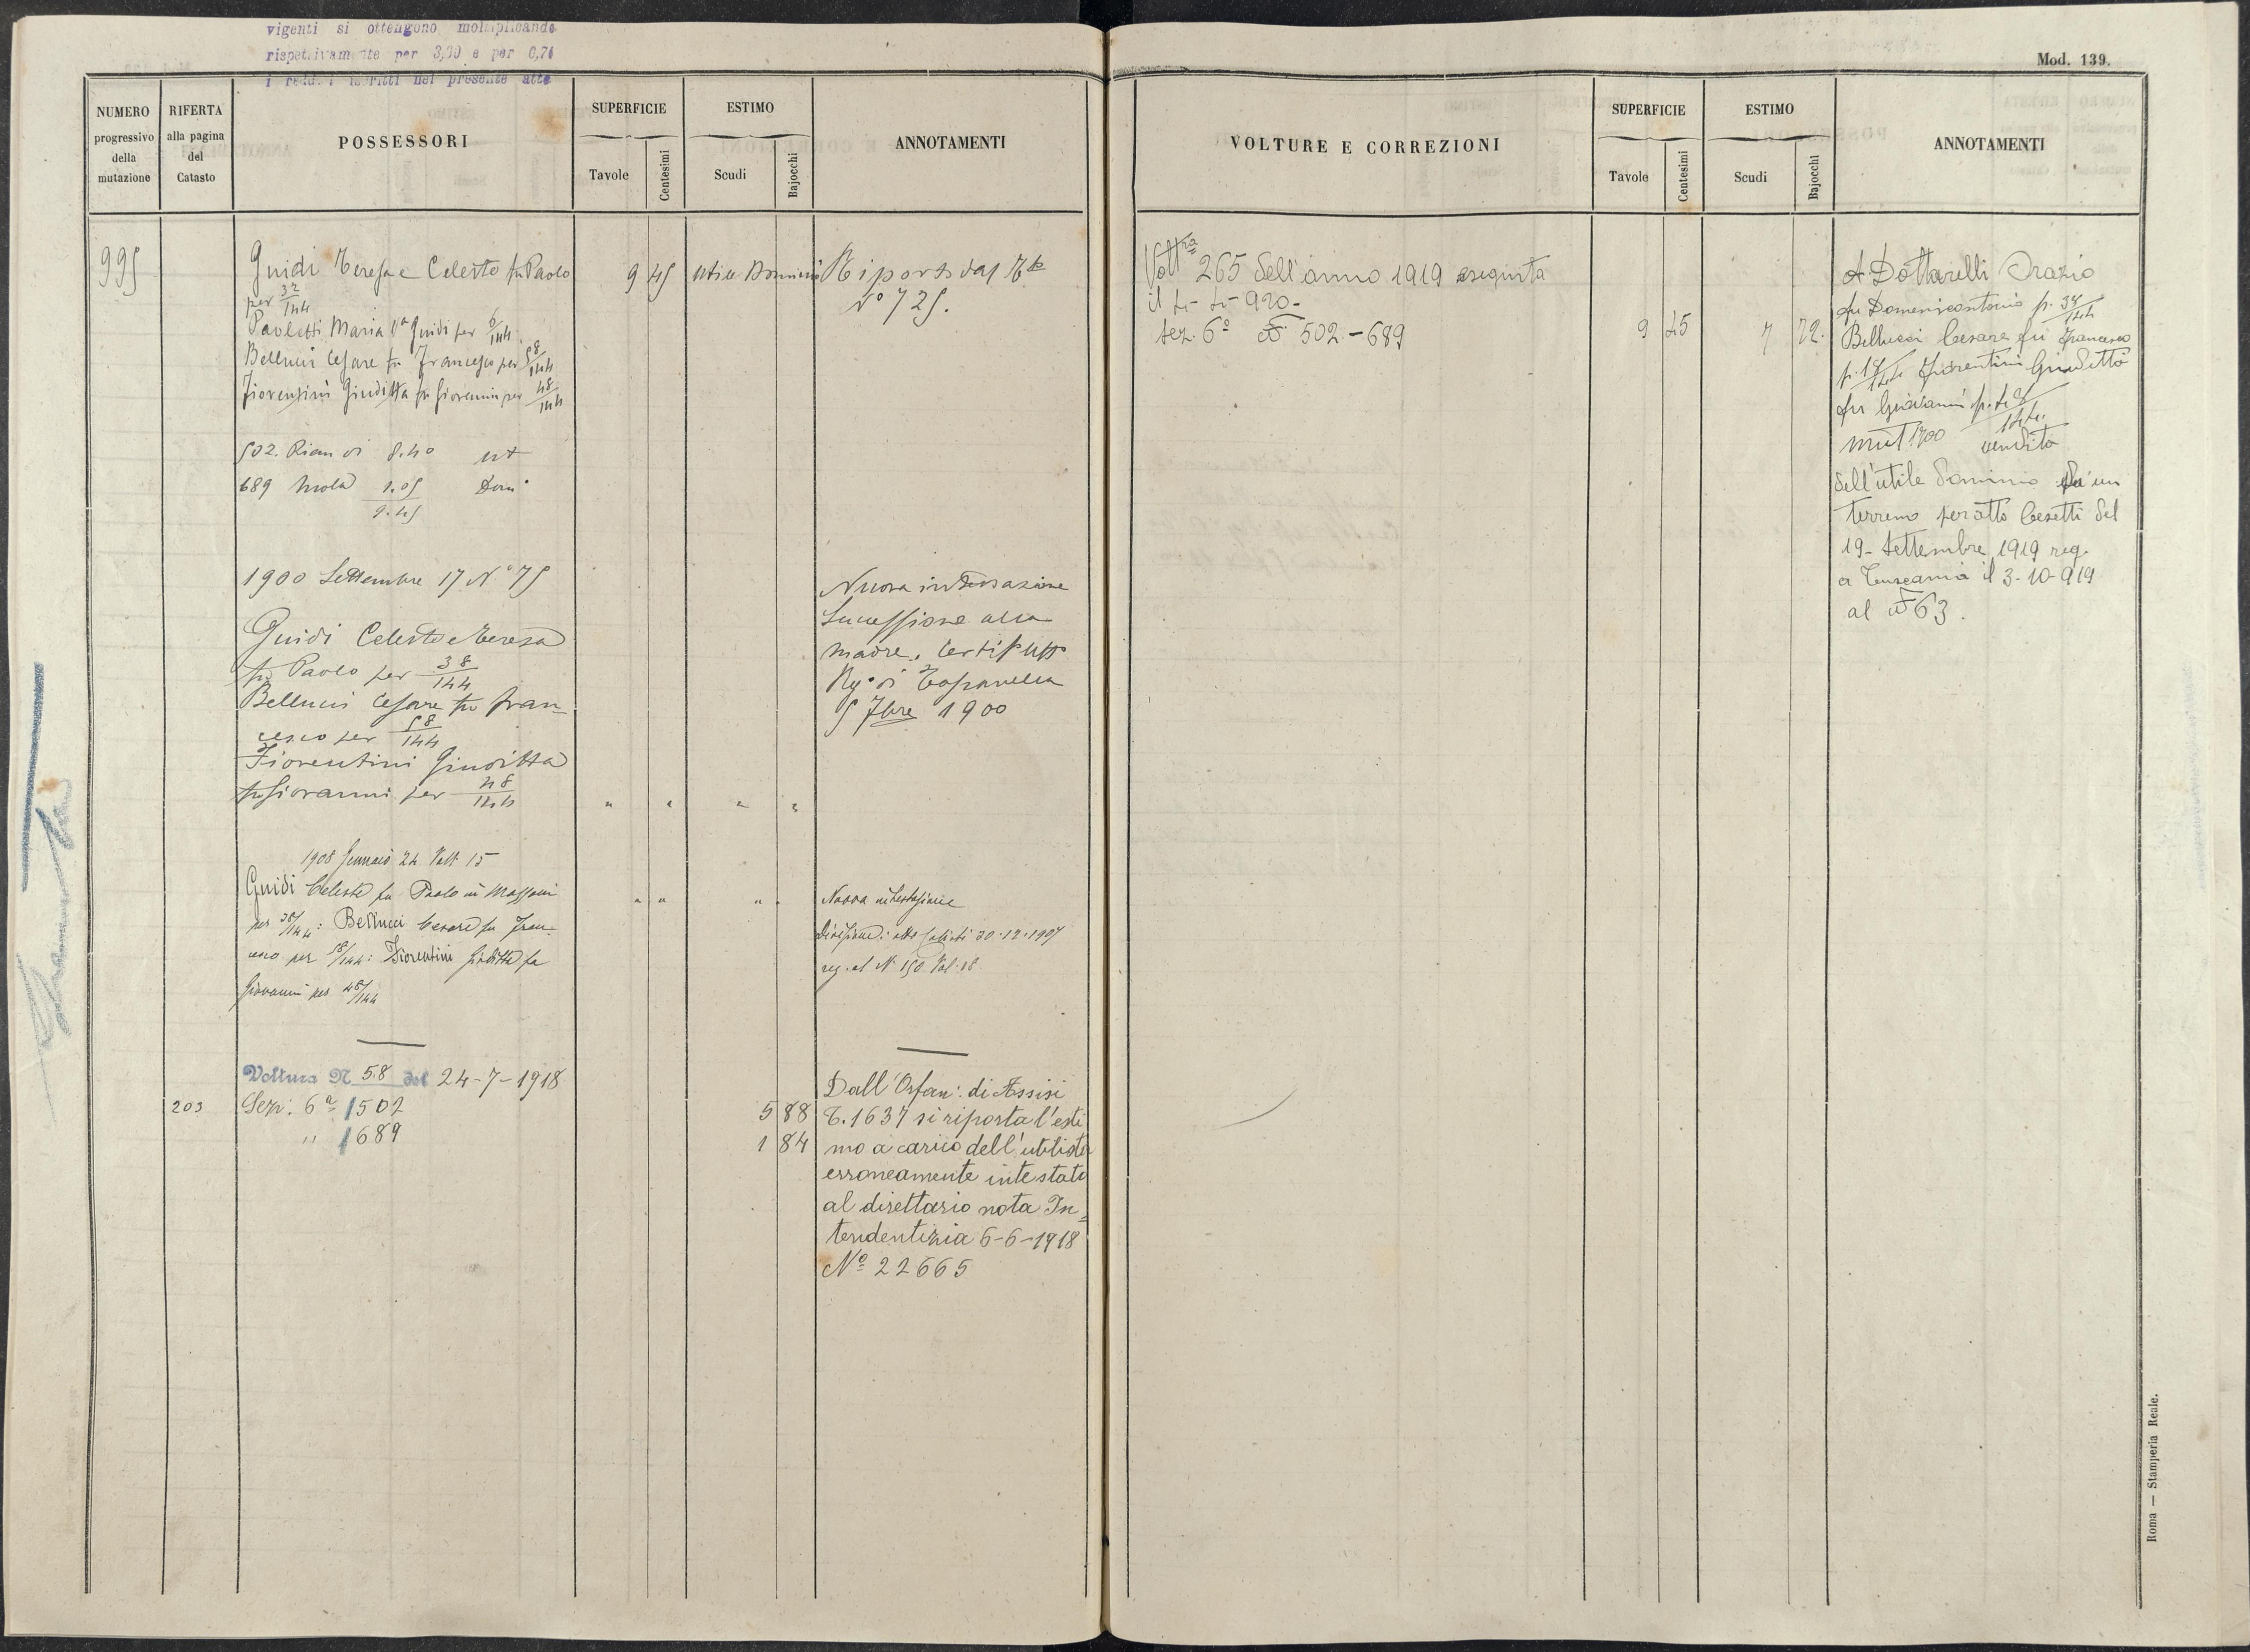 vigenti si ottengono moltiplicando
rispettivamente per 3,30 e per 0,74
i redditi iscritti nel presente atto
Mod. 139.
NUMERO progressivo della mutazione
RIFERTA alla pagina del Catasto
POSSESSORI
SUPERFICIE
Tavole
Centesimi
ESTIMO
Scudi
Bajocchi
ANNOTAMENTI
995
Guidi Teresa e Celeste fu Paolo
per 32/144
Paoletti Maria Va Guidi per 6/144
Bellucci Cesare fu Francesco per 58/144
Fiorentini Giuditta fu Giovanni per 48/144
9 45
Utile Dominio
Riporto dal
No 725.
502. Pian di 8.40 Ut
689 Mola 1.05 Domo
9.45
1900 Settembre 17 No 75
Guidi Celeste e Teresa
fu Paolo per 38/144
Bellucci Cesare fu Fran=
cesco per 58/144
Fiorentini Giuditta
fu Giovanni per 48/144
" " " "
Nuova intestazione
Successione alla
madre. Certif
Rego di Toscanella
5 7bre 1900
1908 Gennaio 24 Volt 15
Guidi Celeste fu Paolo in Massoni
per 38/144: Bellucci Cesare fu Fran-
cesco per 58/144: Fiorentini Giuditta fu
Giovanni per 48/144
" " " "
Nuova intestazione
Divisione: atto 30-12-1907
reg. al N. 150 Vol. 18
Voltura N 58 del 24-7-1918
203
Sez: 6a 1502
" 1689
5 88
1 84
Dall'Orfan: di Assisi
T. 1637 si riporta l'esti
mo a carico dell'utilista
erroneamente intestato
al direttario nota In=
tendentizia 6-6-1918
No 22665
VOLTURE E CORREZIONI
SUPERFICIE
Tavole
Centesimi
ESTIMO
Scudi
Bajocchi
ANNOTAMENTI
Voltra 265 dell'anno 1919 eseguita
il 4-4-920-
sez. 6a N 502-689
9 45
7 72.
A Dottarelli Orazio
fu Domenicantonio p. 38/144
Bellucci Cesare fu Francesco
p. 58/144 Fiorentini Giuditta
fu Giovanni p. 48/144
mut 1700 vendita
dell'utile dominio di un
terreno per atto Cesetti del
19- Settembre 1919 reg.
a Tuscania il 3-10-919
al N 63.
Roma — Stamperia Reale.